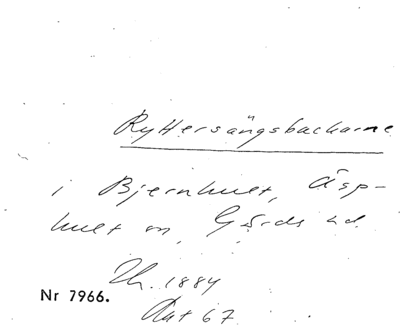 Ryttersängsbackarne
i Bjernhult, Äsp-
hult sn, Gärds hd.
Th. 1884
Nr 7966.
Akt 67